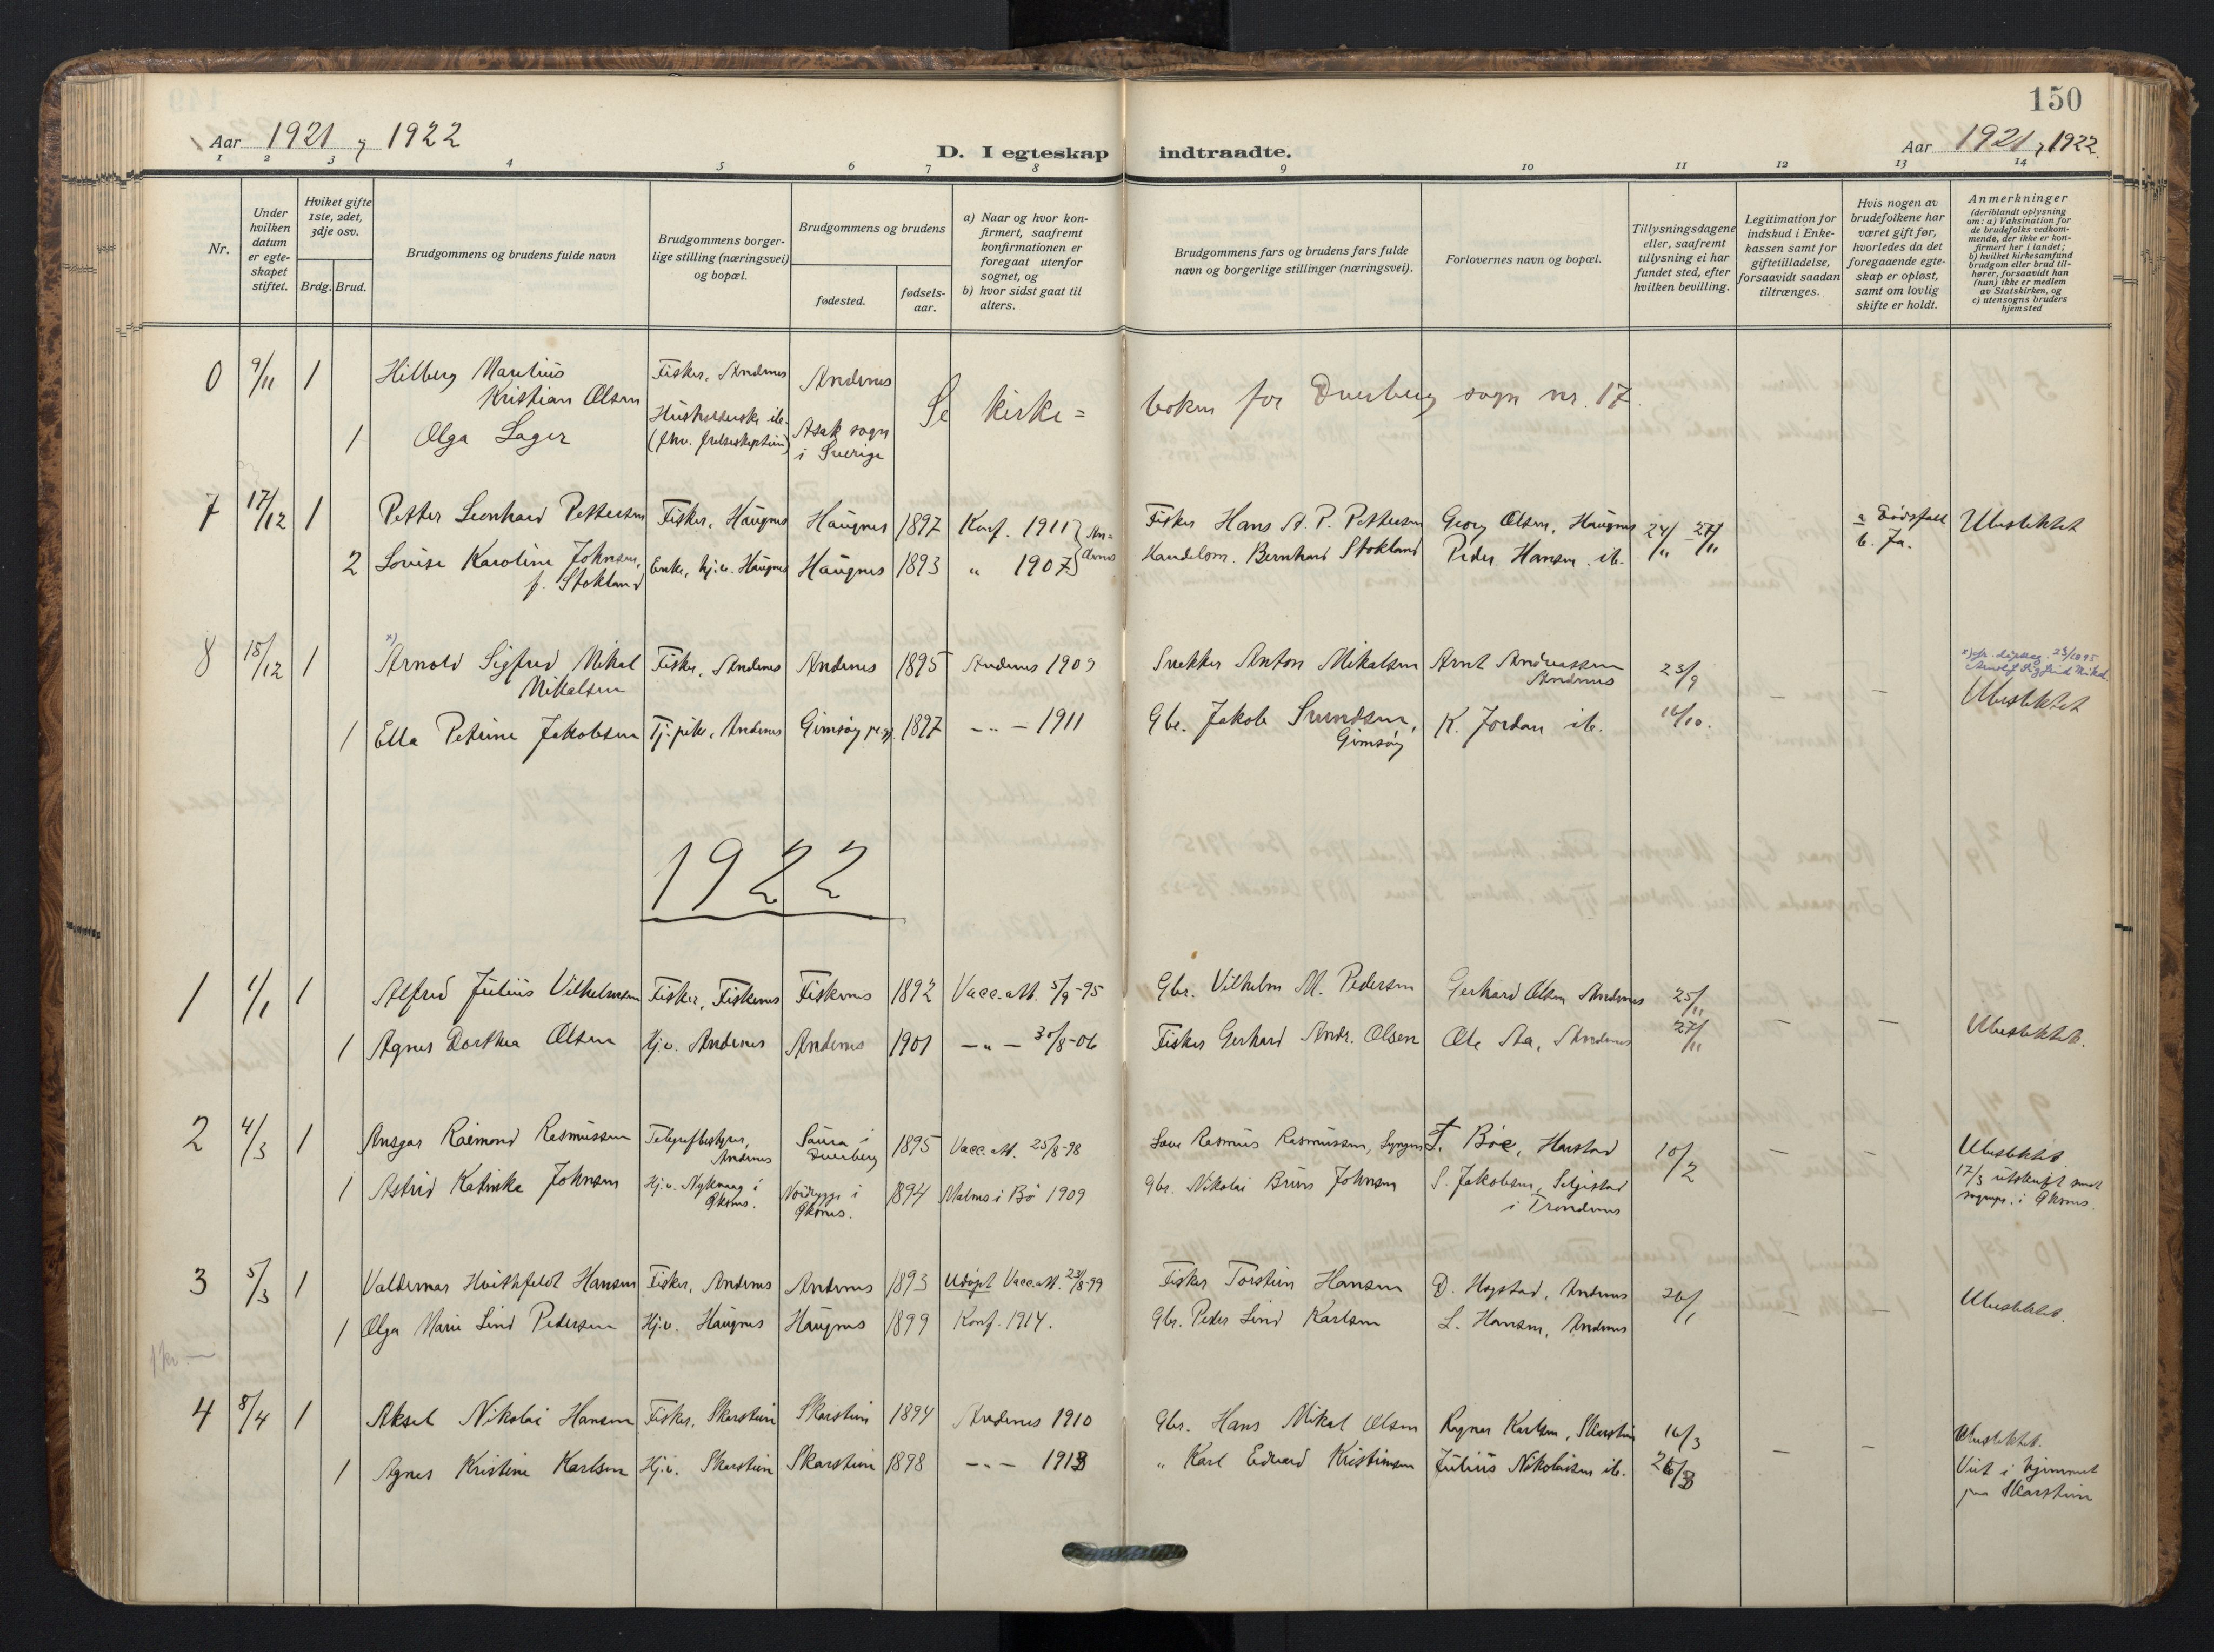 150
Aar 1921 og 1922
D. I egteskap indtraadte.
Aar 1921, 1922.
1 2 3 4 5 6 7 8 9 10 11 12 13 14
Nr.
Under hvilken datum er egteskapet stiftet.
Hvilket gifte 1ste, 2det, 3dje osv.
Brdg. Brud.
Brudgommens og brudens fulde navn
Brudgommens borgerlige stilling (næringsvei) og bopæl.
Brudgommens og brudens
fødested.
fødselsaar.
a) Naar og hvor konfirmert, saafremt konfirmationen er foregaat utenfor sognet, og
b) hvor sidst gaat til alters.
Brudgommens fars og brudens fars fulde navn og borgerlige stillinger (næringsvei).
Forlovernes navn og bopæl.
Tillysningsdagene eller, saafremt tillysning ei har fundet sted, efter hvilken bevilling.
Legitimation for indskud i Enkekassen samt for giftetilladelse, forsaavidt saadan tiltrænges.
Hvis nogen av brudefolkene har været gift før, hvorledes da det foregaaende egteskap er opløst, samt om lovlig skifte er holdt.
Anmerkninger
(deriblandt oplysning om: a) Vaksination for de brudefolks vedkommende, der ikke er konfirmert her i landet; b) hvilket kirkesamfund brudgom eller brud tilhører, forsaavidt han (hun) ikke er medlem av Statskirken, og c) utensogns bruders hjemsted
0 9/11 1 Hilberg Marelius Kristian Olsen Fisker, Andenes Andenes
Se kirke= boken for Dverberg sogn nr. 17.
1 Olga Lager Husholderske ib. Asak sogn i Sverige
7 17/12 1 Petter Leonhard Pettersen Fisker, Haugnes Haugnes 1897 Konf. 1911 Andenes Fisker Hans A. P. Pettersen Georg Olsen, Haugnes 24/11 - 27/11 a Dødsfall b. Ja. Ubeslektet
2 Lovise Karoline Johnsen, f. Stokland Enke, hj.v. Haugnes Haugnes 1893 " 1907 Handelsm. Bernhard Stokland Peder Hansen ib.
8 15/12 1 x) Arnold Sigfred Mikal Mikalsen Fisker, Andenes Andenes 1895 Andenes 1909 Snekker Anton Mikalsen Arnt Andreassen Andenes 23/9 Ubeslektet
1 Ella Petrine Jakobsen Tj.pike, Andenes Gimsøy 1897 -"- 1911 Gbr. Jakob Svendsen, Gimsøy K. Jordan ib. 16/10. - -
1922
1 1/1 1 Alfred Julius Vilhelmsen Fisker, Fiskenes Fiskenes 1892 Vacc.att. 5/9-95 Gbr. Vilhelm M. Pedersen Gerhard Olsen Andenes 25/11
1 Agnes Dorthea Olsen Hj.v. Andenes Andenes 1901 -"- 30/8-06 Fisker Gerhard Andr. Olsen Ole Aa, Andenes 27/11 - - Ubeslektet.
2 4/3 1 Ansgar Raimond Rasmussen Telegrafbestyrer, Andenes Saura i Dverberg 1895 Vacc.att. 25/8-98 Rasmus Rasmussen, T. Bøe, Harstad 10/2 - - Ubeslektet
1 Astrid Katinka Johnsen Hj.v. Nykvaag i Øksnes. i Øksnes. 1894 Malnes i Bø 1909 Gbr. Nikolai Bruns Johnsen S. Jakobsen, Seljestad i Trondenes 17/3 utskrift sendt sognepr. i Øksnes.
3 5/3 1 Valdemar Hvithfeldt Hansen Fisker, Andenes Andenes 1893 Udøpt Vacc.att. 23/8-99 Fisker Torstein Hansen D. Hogstad, Andenes 26/1 - - Ubeslektet.
1 Olga Marie Lind Pedersen Hj.v. Haugnes Haugnes 1899 Konf. 1914. Gbr. Peder Lind Karlsen L. Hansen, Andenes
4 8/4 1 Aksel Nikolai Hansen Fisker, Skarstein Skarstein 1894 Andenes 1910 Gbr. Hans Mikal Olsen Ragnar Karlsen, Skarstein 16/3 - - Ubeslektet.
1 Agnes Kristine Karlsen Hj.v. Skarstein Skarstein 1898 -"- 1913 " Karl Edvard Kristiansen Julius Nikolaisen ib. 26/3 Viet i hjemmet paa Skarstein